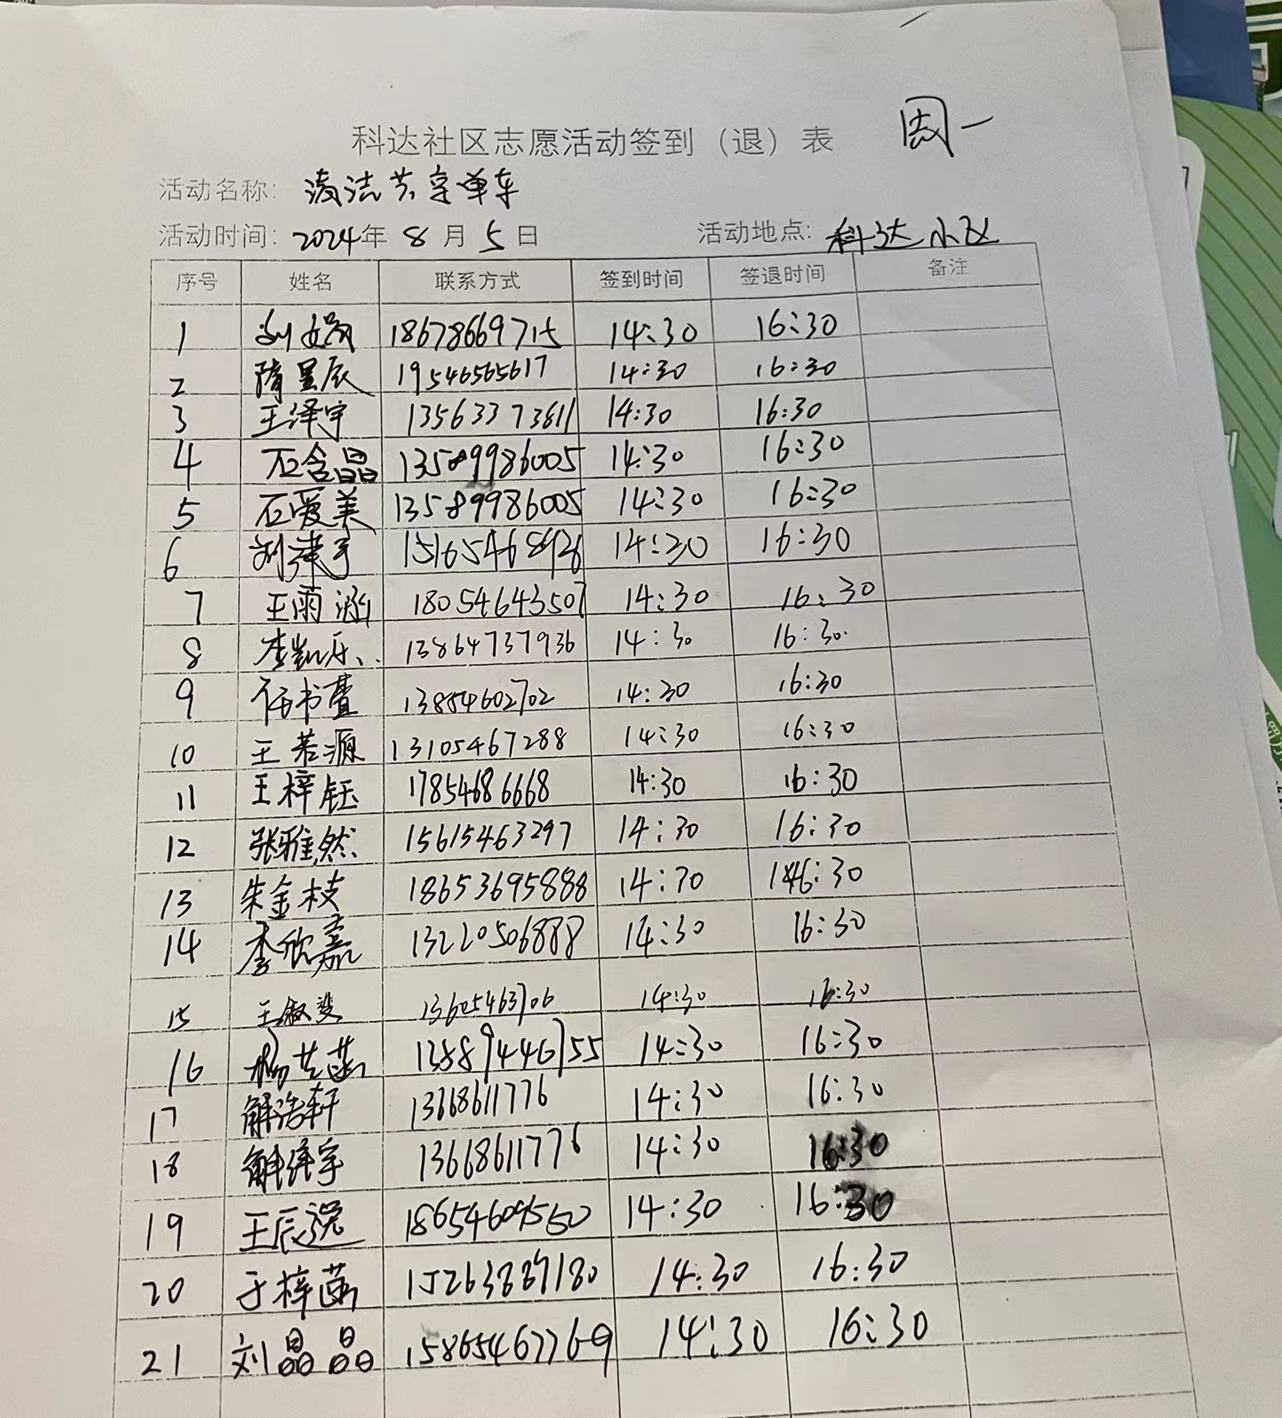 周一
科达社区志愿活动签到（退）表
活动名称: 清洁共享单车
活动时间: 2024年 8 月 5 日 活动地点: 科达小区
序号 姓名 联系方式 签到时间 签退时间 备注
1 刘 18678669715 14:30 16:30
2 隋星辰 19546565617 14:30 16:30
3 王泽宇 13563373811 14:30 16:30
4 石含晶 13589986005 14:30 16:30
5 石爱美 13589986005 14:30 16:30
6 刘津宇 14:30 16:30
7 王雨涵 18054643507 14:30 16:30
8 李凯乐 13864737936 14:30 16:30
9 任书萱 13884602702 14:30 16:30
10 王若源 13105467288 14:30 16:30
11 王梓钰 17854686668 14:30 16:30
12 张雅然 15615463297 14:30 16:30
13 朱金枝 18653695888 14:30 16:30
14 李欣嘉 13220506888 14:30 16:30
15 王叙斐 13605463706 14:30 16:30
16 杨芷菡 13889446755 14:30 16:30
17 解浩轩 13668611776 14:30 16:30
18 解绎宇 13668611776 14:30 16:30
19 王辰逸 14:30 16:30
20 于梓菡 15263889180 14:30 16:30
21 刘晶晶 15865467769 14:30 16:30